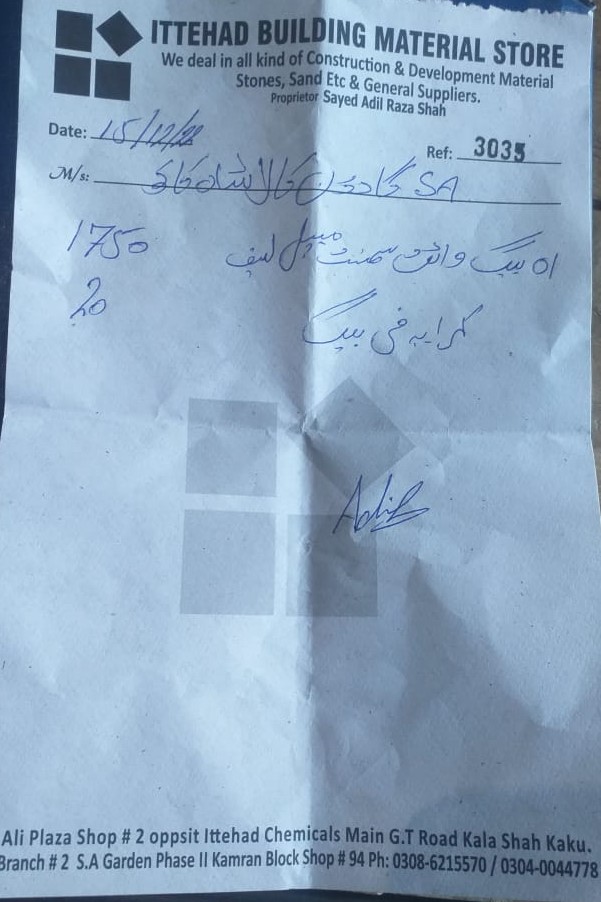 ITTEHAD BUILDING MATERIAL STORE
We deal in all kind of Construction & Development Material
Stones, Sand Etc & General Suppliers.
Proprietor Sayed Adil Raza Shah
Date: 15/12/22
Ref: 3035
M/s: SA گارڈن کالا شاہ کاکو
بیگ وائٹ سیمنٹ میپل لیف 1750
کرایہ فی بیگ 20
Adil
Ali Plaza Shop # 2 oppsit Ittehad Chemicals Main G.T Road Kala Shah Kaku.
Branch # 2 S.A Garden Phase II Kamran Block Shop # 94 Ph: 0308-6215570 / 0304-0044778